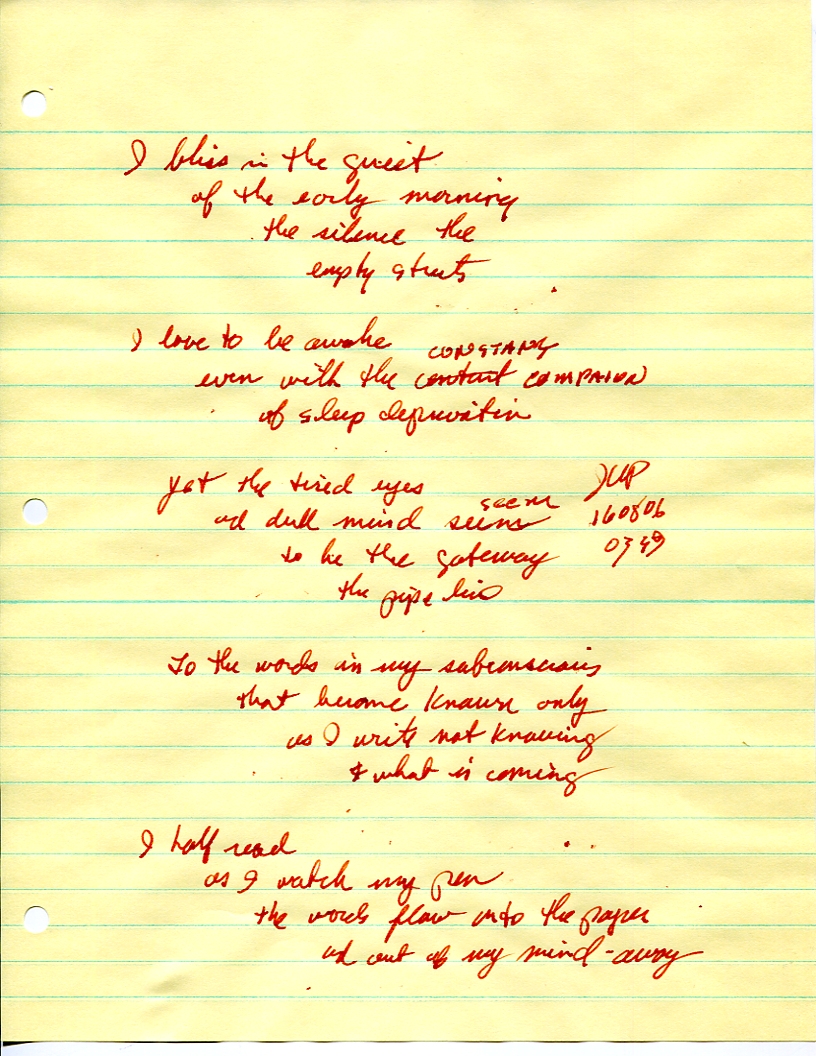 I bliss in the quiet
of the early morning
the silence the
empty streets
I love to be awake
CONSTANT
even with the constant COMPAION
of sleep deprivation
yet the tired eyes
seem
ad dull mind seems
160806
to be the gateway
0349
the pipe line
to the words in my subconscious
that become known only
as I write not knowing
what is coming
I half read
as I watch my pen
the words flow onto the paper
ad out of my mind-away